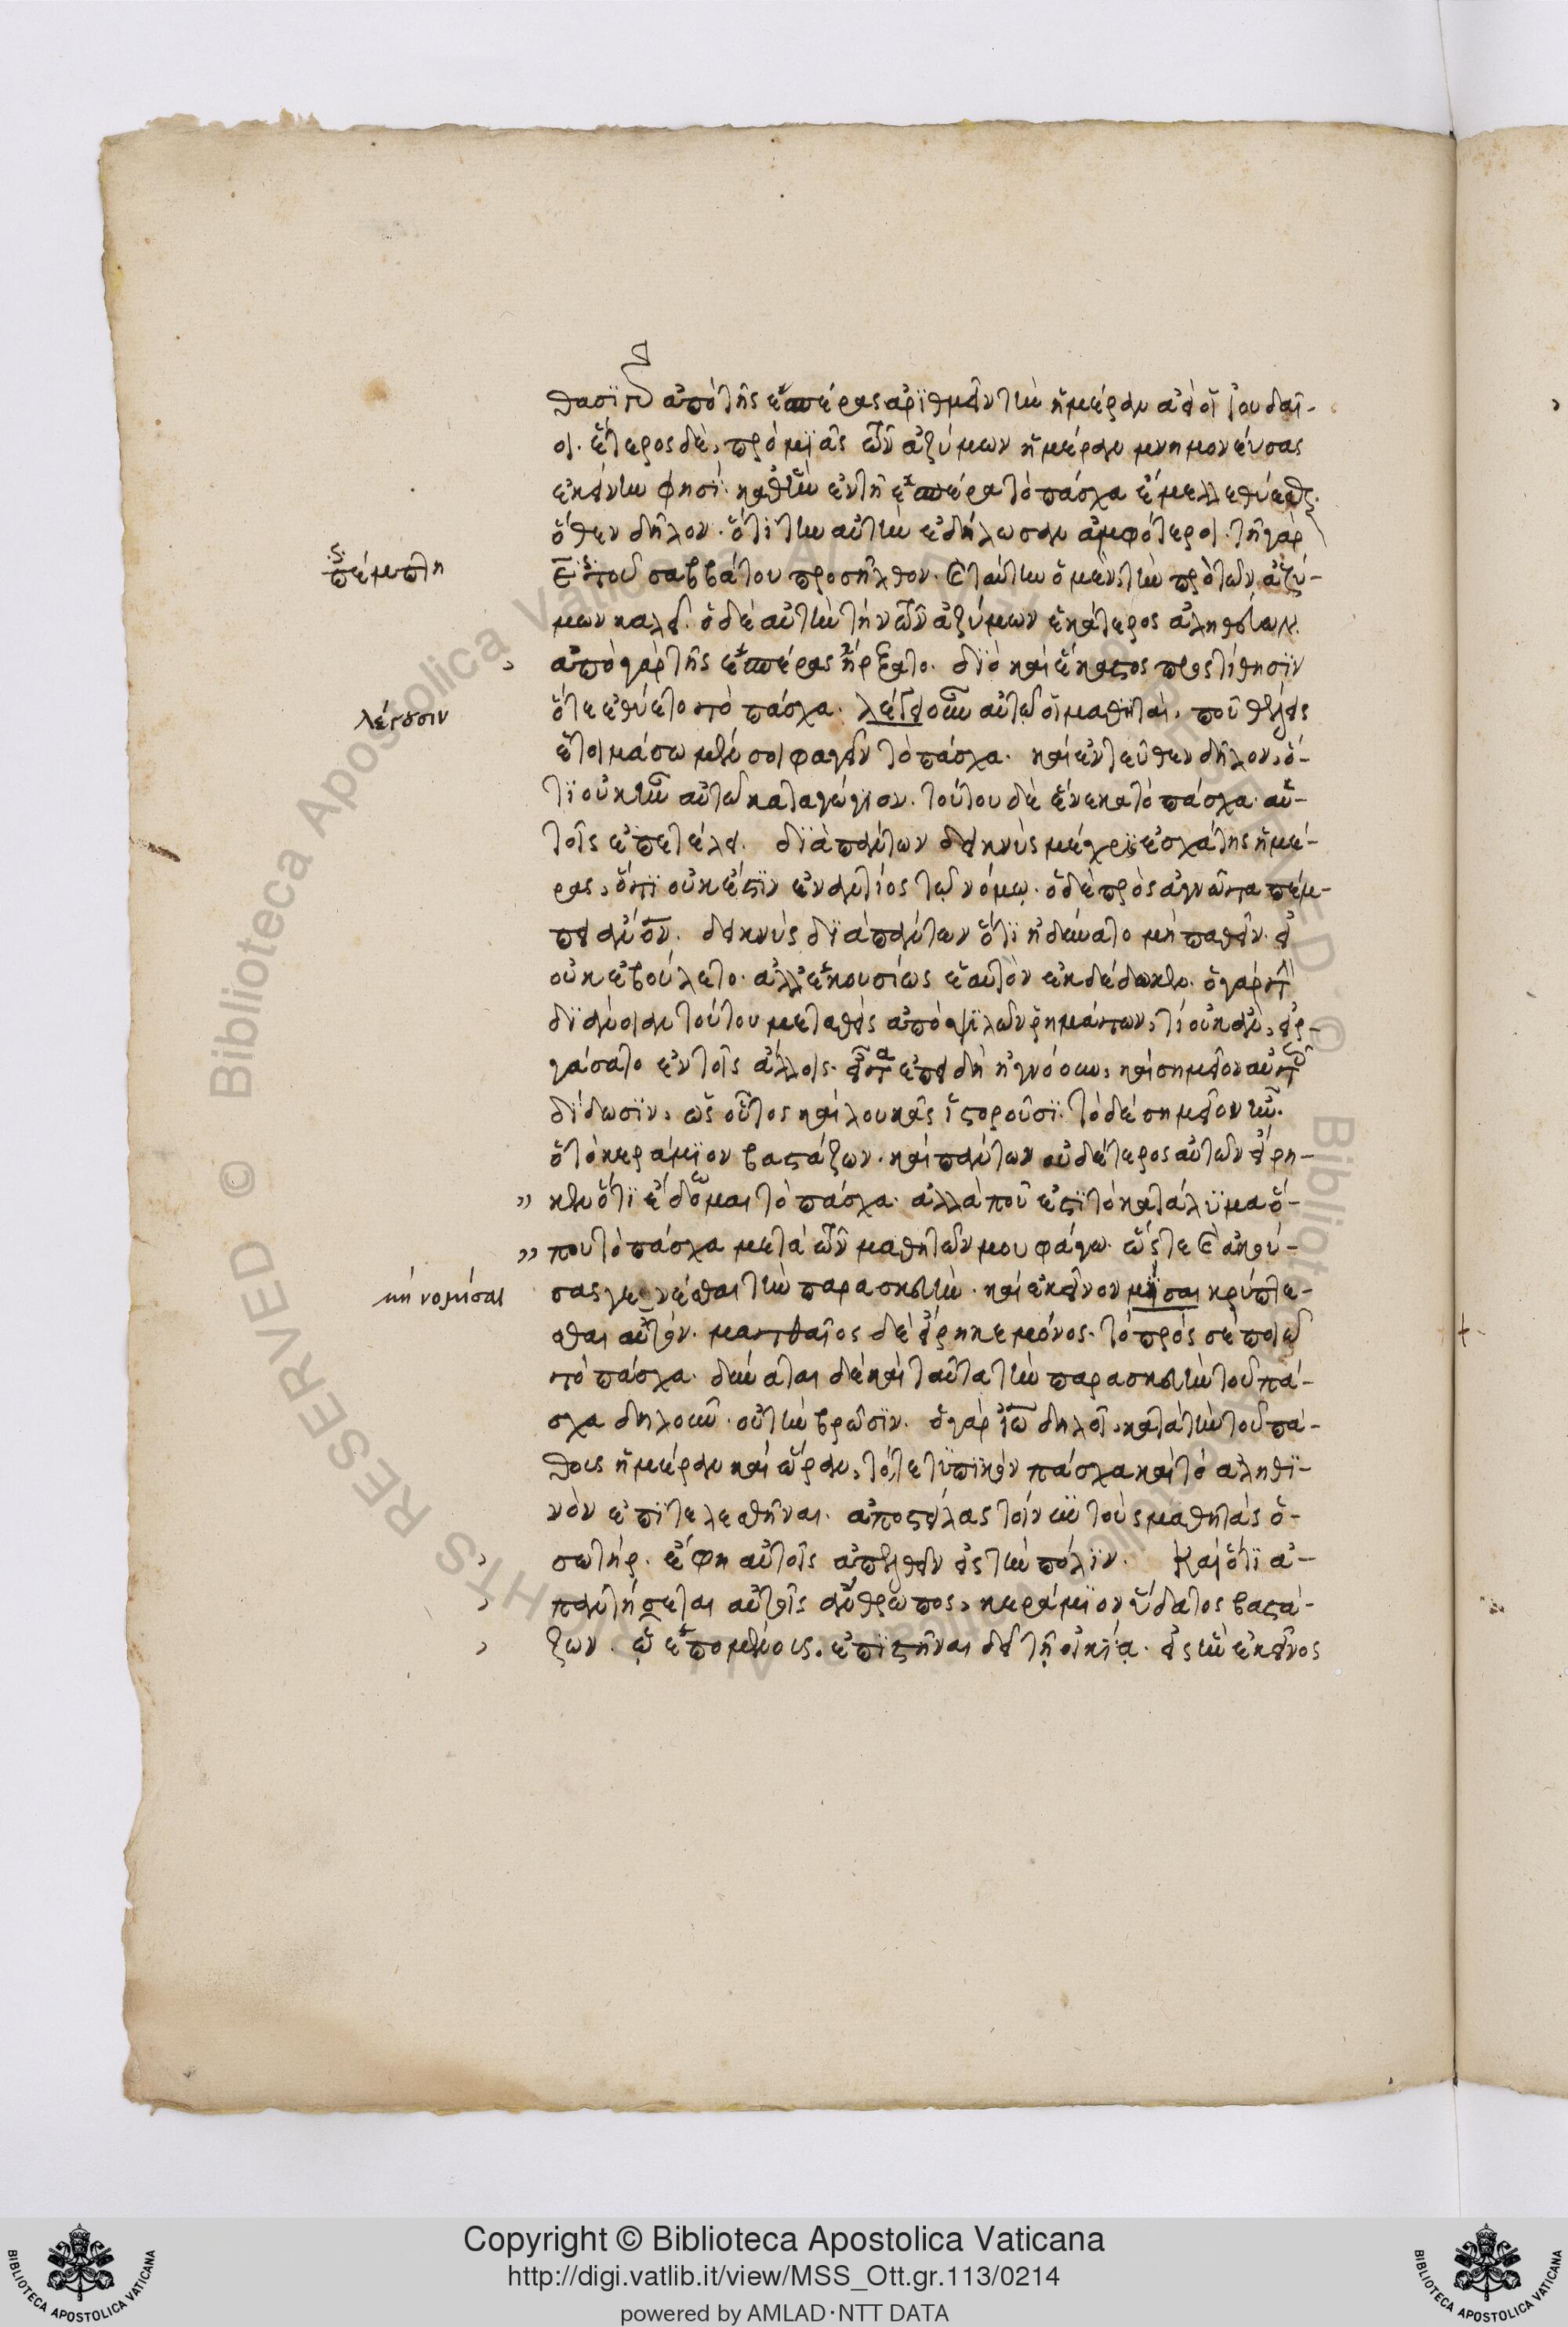 θασϊν ἀπὸ τῆς ἑσπέρας ἀρϊθμεῖν τὴν ἡμέραν ἀεὶ οἱ ἰουδαῖ-
οι. ἕτερος δὲ, πρὸ μϊᾶς τῶν ἀζύμων ἡμέραν μνημονεύσας
ἐκείνην φησὶ· καθ' ἣν ἐν τῇ ἑσπέρα τὸ πάσχα ἔμελλε θύεσθαι.
ὅθεν δῆλον. ὅτι τὴν αὐτὴν ἐδήλωσαν ἀμφότεροι. τῆ γὰρ
πέμπτη
ε τοῦ σαββάτου προσῆλθον. καὶ ταύτην ὁ μὲν, τὴν πρὸ τῶν ἀζύ-
μων καλεῖ. ὁ δὲ αὐτὴν τὴν τῶν ἀζύμων ἑκάτερος ἀληθεύων.
ἀπὸ γὰρ τῆς ἑσπέρας ἤρξατο. διὸ καὶ ἕκαστος προστίθησϊν
λέγουσιν
ὅτε ἐθύετο τὸ πάσχα. λέγουσιν αὐτῶ οἱ μαθηταὶ, ποῦ θέλεις
ἑτοιμάσωμέν σοι φαγεῖν τὸ πάσχα. καὶ ἐντεῦθεν δῆλον, ὅ-
τϊ οὐκ ἦν αὐτῶ καταγώγϊον. τούτου δὲ ἕνεκα τὸ πάσχα αὐ-
τοῖς ἐπετέλει. διὰ πάντων δεικνὺς μέχρϊς ἐσχάτης ἡμέ-
ρας, ὅτϊ οὐκ ἔστϊν ἐναντίος τῶ νόμω. ὁ δὲ πρὸς ἀγνῶτα πέμ-
πει αὐτόν. δεικνὺς διὰ πάντων ὅτϊ ἠδύνατο μὴ παθεῖν. εἰ
οὐκ ἐβούλετο. ἀλλ' ἑκουσίως ἑαυτὸν ἐκδέδωκεν. ὁ γὰρ τὴν
διάνοιαν τούτου μεταθεὶς ἀπὸ ψϊλῶν ῥημάτων, τί οὐκ ἂν, εἰρ-
γάσατο ἐν τοῖς ἄλλοις. εἶτα ἐπειδὴ ἠγνόουν, καὶ σημεῖον αὐτοῖς
δίδωσϊν, ὡς οὗτος καὶ λουκᾶς ἱστοροῦσϊ. τὸ δὲ σημεῖον ἦν.
ὁ τὸ κεράμϊον βαστάζων. καὶ πάντων οὐδέτερος αὐτῶν εἴρη-
" κεν ὅτϊ ἔδομαι τὸ πάσχα. ἀλλὰ ποῦ ἐστϊ τὸ κατάλυμα ὅ-
" που τὸ πάσχα μετὰ τῶν μαθητῶν μου φάγω. ὥστε καὶ ἀκού-
μὴ νομίσαι
σας γενέσθαι τὴν παρασκευὴν. καὶ ἐκεῖνον μὴσαι κρύπτε-
σθαι αὐτόν. ματθαῖος δὲ εἴρηκε μόνος. τὸ πρὸς σὲ ποιῶ
τὸ πάσχα. δύναται δὲ καὶ ταῦτα τὴν παρασκευὴν τοῦ πά-
σχα δηλοῦν. οὐ τὴν βρῶσϊν. ὁ γὰρ ἰω δηλοῖ, κατὰ τὴν τοῦ πά-
θους ἡμέραν καὶ ὥραν, τό, τε τυπϊκὸν πάσχα καὶ τὸ ἀληθϊ-
νὸν ἐπϊτελεσθῆναι. ἀποστείλας τοίνυν τοὺς μαθητὰς ὁ
σωτὴρ. ἔφη αὐτοῖς ἀπελθεῖν εἰς τὴν πόλϊν. Καὶ ὅτϊ ἀ-
παντήσεται αὐτοῖς ἄνθρωπος, κεράμϊον ὕδατος βαστά-
ζων. ᾧ ἑπομένοις, ἐπϊστῆναι δεῖ τῇ οἰκίᾳ. εἰς ἣν ἐκεῖνος
Copyright © Biblioteca Apostolica Vaticana
http://digi.vatlib.it/view/MSS_Ott.gr.113/0214
powered by AMLAD·NTT DATA
BIBLIOTECA APOSTOLICA VATICANA
BIBLIOTECA APOSTOLICA VATICANA